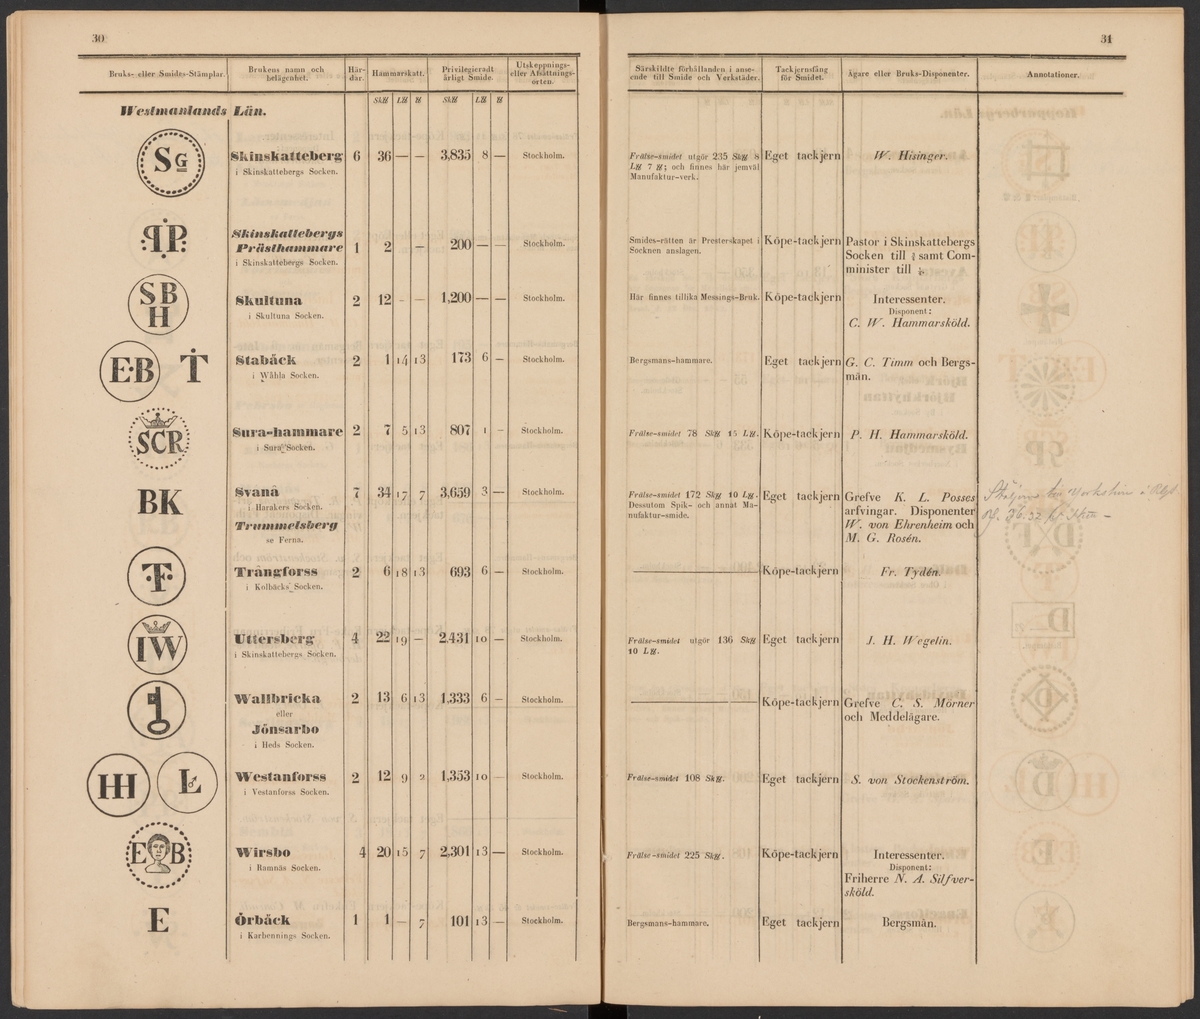 30
Bruks- eller Smides-Stämplar.
Brukens namn och belägenhet.
Härdar.
Hammarskatt.
Privilegieradt årligt Smide.
Utskeppnings- eller Afsättnings-orten.
Westmanlands Län.
SG
Skinskatteberg 6 36 — — 3,835 8 — Stockholm.
i Skinskattebergs Socken.
Skinskattebergs
Prästhammare 1 2 — 200 — — Stockholm.
i Skinskattebergs Socken.
SB
H
Skultuna 2 12 — — 1,200 — — Stockholm.
i Skultuna Socken.
E·B T
Stabäck 2 1 14 13 173 6 — Stockholm.
i Wåhla Socken.
SCR
Sura-hammare 2 7 5 13 807 1 — Stockholm.
i Sura Socken.
BK
Svanå 7 34 17 7 3,659 3 — Stockholm.
i Harakers Socken.
Trummelsberg
se Ferna.
·T·
Trångforss 2 6 18 13 693 6 — Stockholm.
i Kolbäcks Socken.
IW
Uttersberg 4 22 19 — 2,431 10 — Stockholm.
i Skinskattebergs Socken.
Wallbricka 2 13 6 13 1,333 6 — Stockholm.
eller
Jönsarbo
i Heds Socken.
HH L
Westanforss 2 12 9 2 1,353 10 — Stockholm.
i Vestanforss Socken.
E B
Wirsbo 4 20 15 7 2,301 13 — Stockholm.
i Ramnäs Socken.
E
Örbäck 1 1 — 7 101 13 — Stockholm.
i Karbennings Socken.
31
Särskildte förhållanden i anseende till Smide och Verkstäder.
Tackjernsfång för Smidet.
Ägare eller Bruks-Disponenter.
Annotationer.
Frälse-smidet utgör 235 Sk℔ 8 Eget tackjern W. Hisinger.
L℔ 7 ℔; och finnes här jemväl
Manufaktur-verk.
Smides-rätten är Presterskapet i Köpe-tackjern Pastor i Skinskattebergs
Socknen anslagen. Socken till samt Com-
minister till
Här finnes tillika Messings-Bruk. Köpe-tackjern Interessenter.
Disponent:
C. W. Hammarsköld.
Bergsmans-hammare. Eget tackjern G. C. Timm och Bergs-
män.
Frälse-smidet 78 Sk℔ 15 L℔. Köpe-tackjern P. H. Hammarsköld.
Frälse-smidet 172 Sk℔ 10 L℔. Eget tackjern Grefve K. L. Posses
Dessutom Spik- och annat Ma- arfvingar. Disponenter
nufaktur-smide. W. von Ehrenheim och
M. G. Rosén.
Köpe-tackjern Fr. Tydén.
Frälse-smidet utgör 136 Sk℔ Eget tackjern J. H. Wegelin.
10 L℔.
Köpe-tackjern Grefve C. S. Mörner
och Meddelägare.
Frälse-smidet 108 Sk℔. Eget tackjern S. von Stockenström.
Frälse-smidet 225 Sk℔. Köpe-tackjern Interessenter.
Disponent:
Friherre N. A. Silfver-
sköld.
Bergsmans-hammare. Eget tackjern Bergsmän.